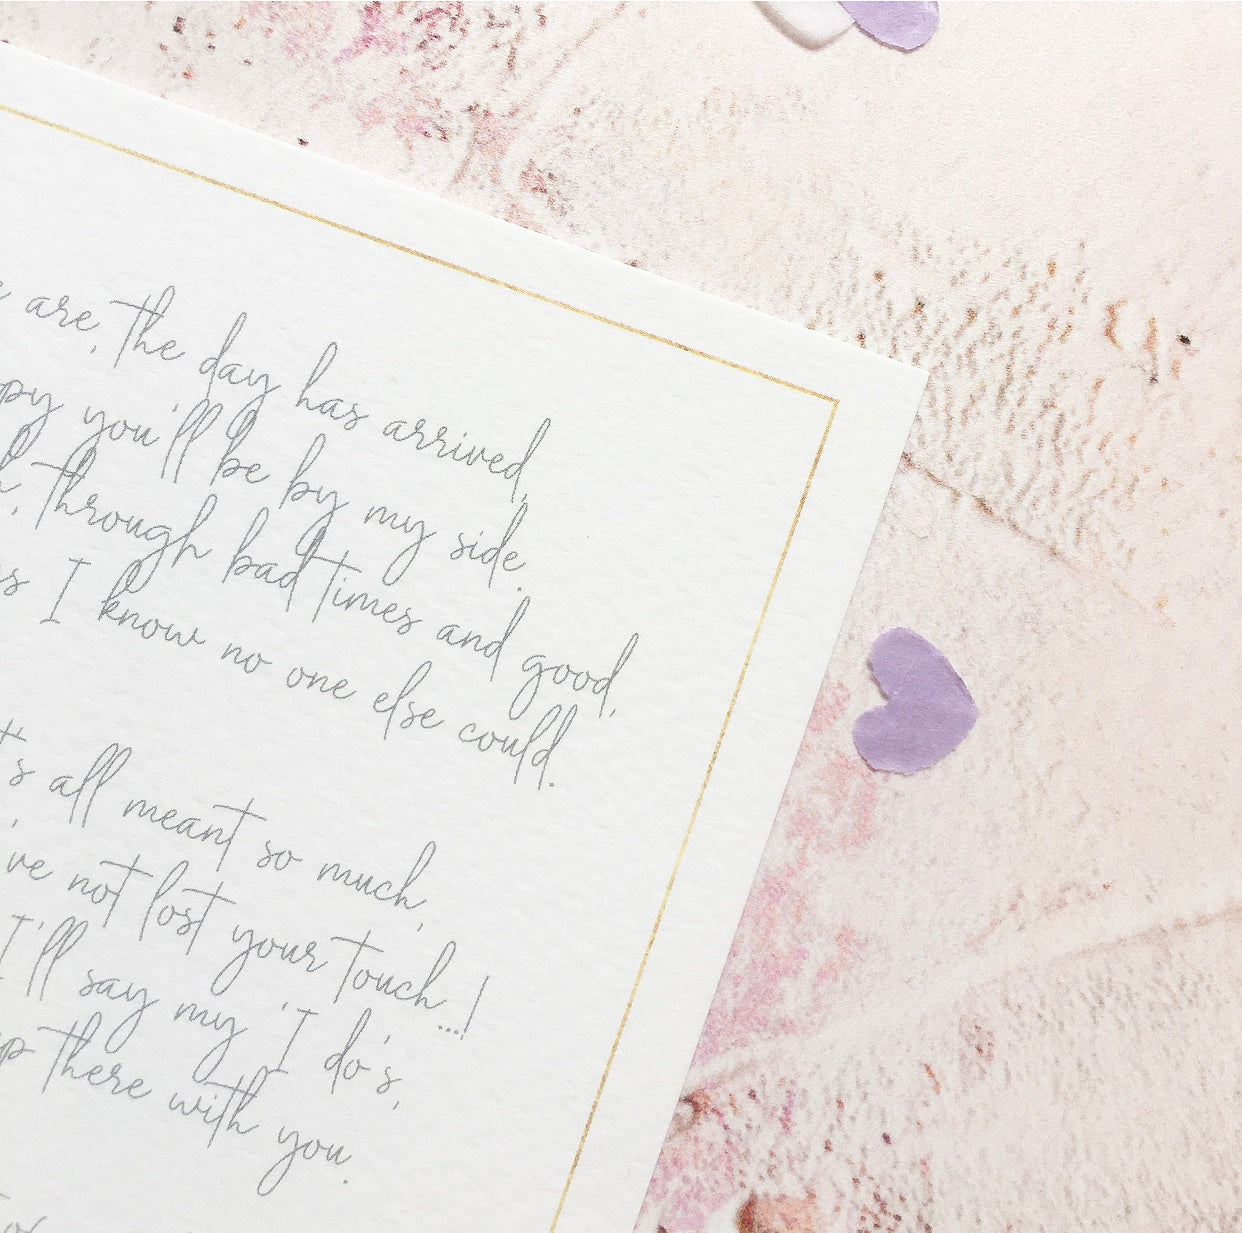 are, the day has arrived,
you'll be by my side.
through bad times and good,
I know no one else could.
all meant so much,
've not lost your touch...!
I'll say my 'I do's,
there with you.